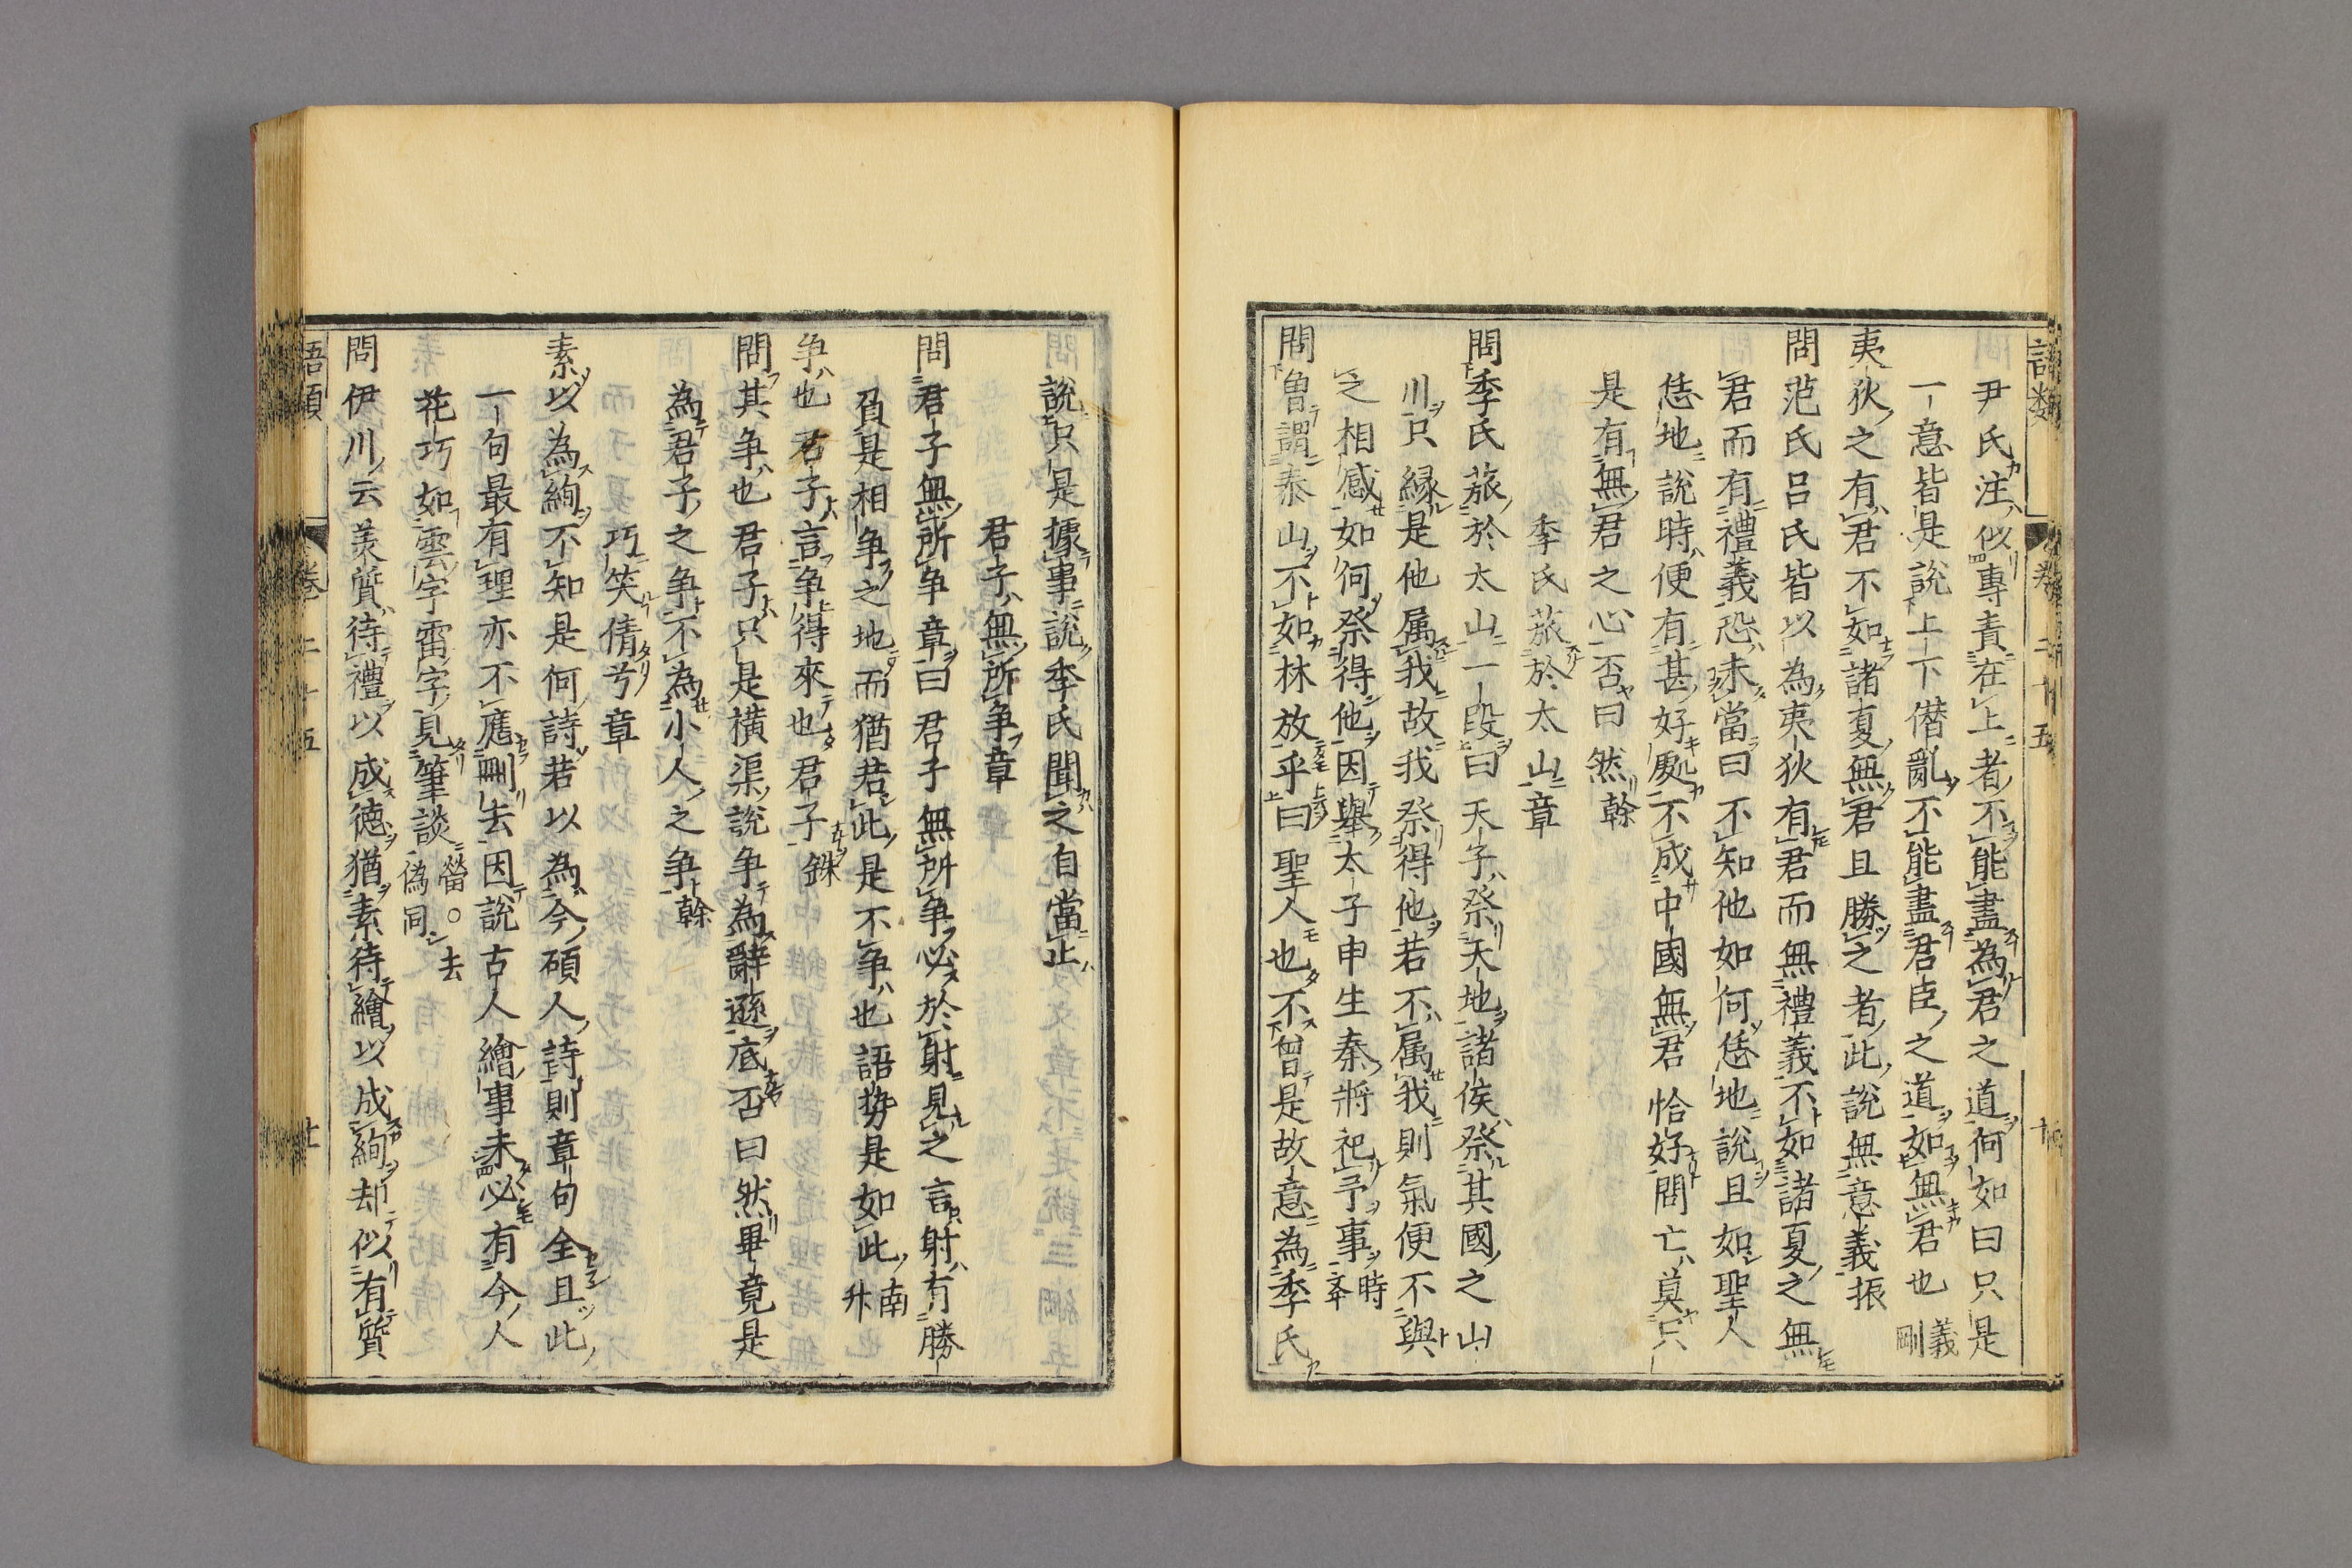 尹氏注似專責在上者不能盡為君之道何如曰只是
一意皆是說上下僭亂不能盡君臣之道如無君也義剛
夷狄之有君不如諸夏無君且勝之者此說無意義振
問范氏呂氏皆以為夷狄有君而無禮義不如諸夏之無
君而有禮義恐未當曰不知他如何恁地說且如聖人
恁地說時便有甚好處不成中國無君恰好問亡莫只
是有無君之心否曰然榦
季氏旅於太山章
問季氏旅於太山一段曰天子祭天地諸侯祭其國之山
川只縁是他属我故我祭得他若不属我則氣便不與
之相感如何祭得他因舉太子申生秦將祀予事時舉
問曾謂泰山不如林放乎曰聖人也不曾是故意為季氏
說只是據事說季氏聞之自當止
君子無所争章
問君子無所争章曰君子無所争必於射見之言射有勝
負是相争之地而猶若此是不争也語勢是如此南升
争也君子言争得來也君子銖
問其争也君子只是横渠說争為辭遜底否曰然畢竟是
為君子之争不為小人之争榦
巧笑倩兮章
素以為絢不知是何詩若以為今碩人詩則章句全且此
一句最有理亦不應刪去因說古人繪事未必有今人
花巧如雲字雷字見筆談𥳑。去偽同
問伊川云美質待禮以成徳猶素待繪以成絢却似有質
語類
卷二十五